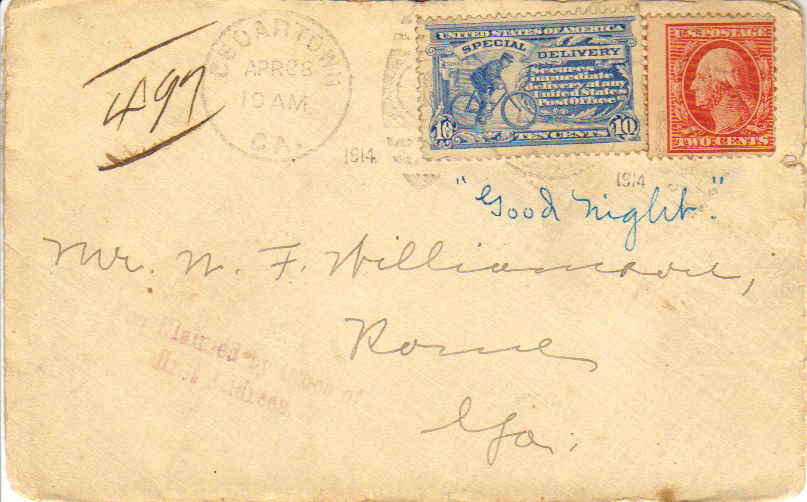 497
CEDARTOWN
APR 28
10 AM
GA.
1914
UNITED STATES OF AMERICA
SPECIAL DELIVERY
Secures immediate delivery at any United States Post Office
10 TEN CENTS 10
U.S. POSTAGE
TWO CENTS
1914
"Good night."
Mr. W. F. Williamson,
Rome
Ga.
Claimed by
of